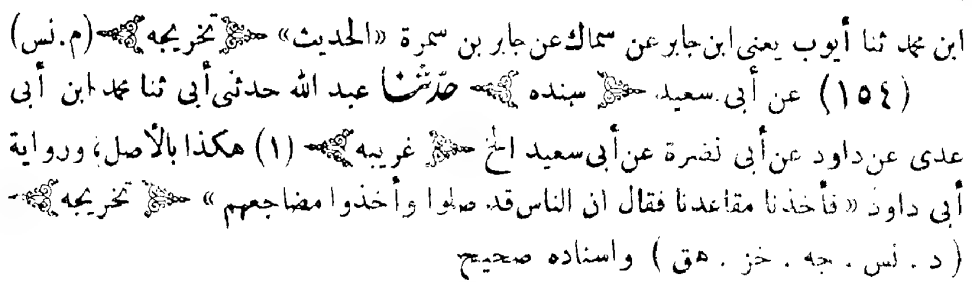 ابن محمد ثنا أيوب يعنى ابن جابر عن سماك عن جابر بن سمرة «الحديث» ﴿ تخريجه ﴾ (م.نس)
(١٥٤) عن أبى سعيد ﴿ سنده ﴾ حدّثنا عبد الله حدثنى أبى ثنا محمد ابن أبى
عدى عن داود عن أبى نضرة عن أبى سعيد الخ ﴿ غريبه ﴾ (١) هكذا بالأصل، ورواية
أبى داود «فأخذنا مقاعدنا فقال ان الناس قد صلوا وأخذوا مضاجعهم» ﴿ تخريجه ﴾
(د . نس . جه . خز . هق) واسناده صحيح